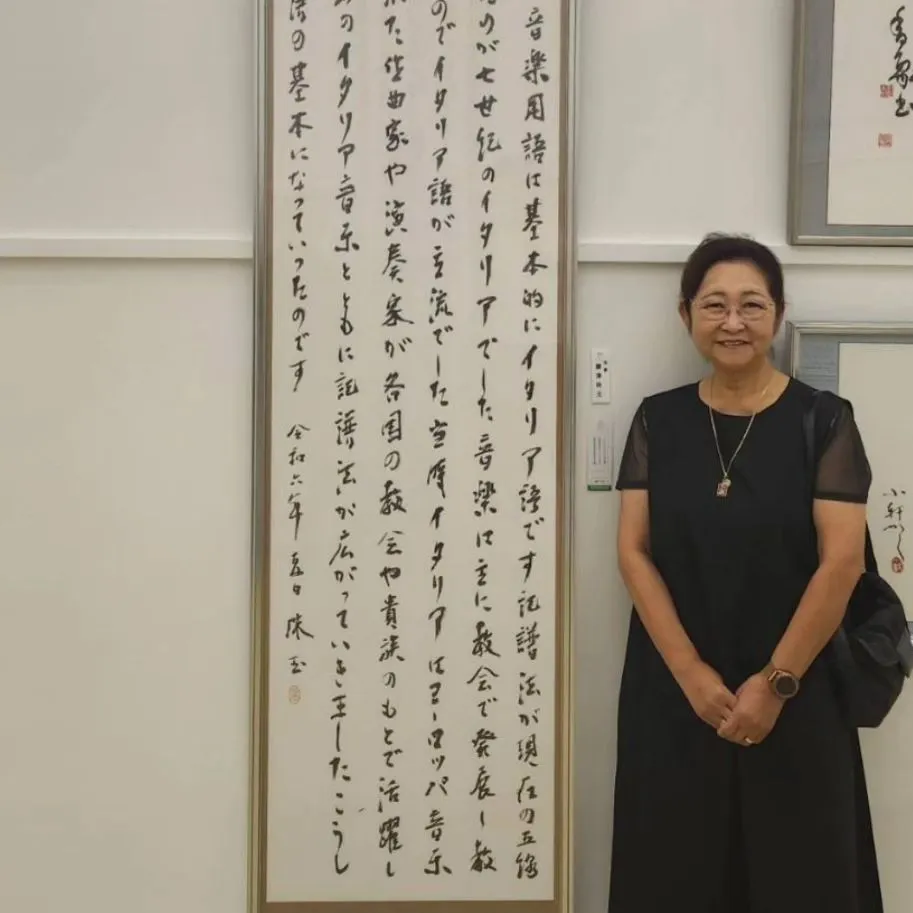 音楽用語は基本的にイタリア語です記譜法が現在の五線
のが七世紀のイタリアでした音楽は主に教会で発展し教
のでイタリア語が主流でした当時イタリアはヨーロッパ音楽
た作曲家や演奏家が各国の教会や貴族のもとで活躍し
のイタリア音楽とともに記譜法が広がっていきましたこうし
の基本になっていったのです 令和六年 夏日 珠玉